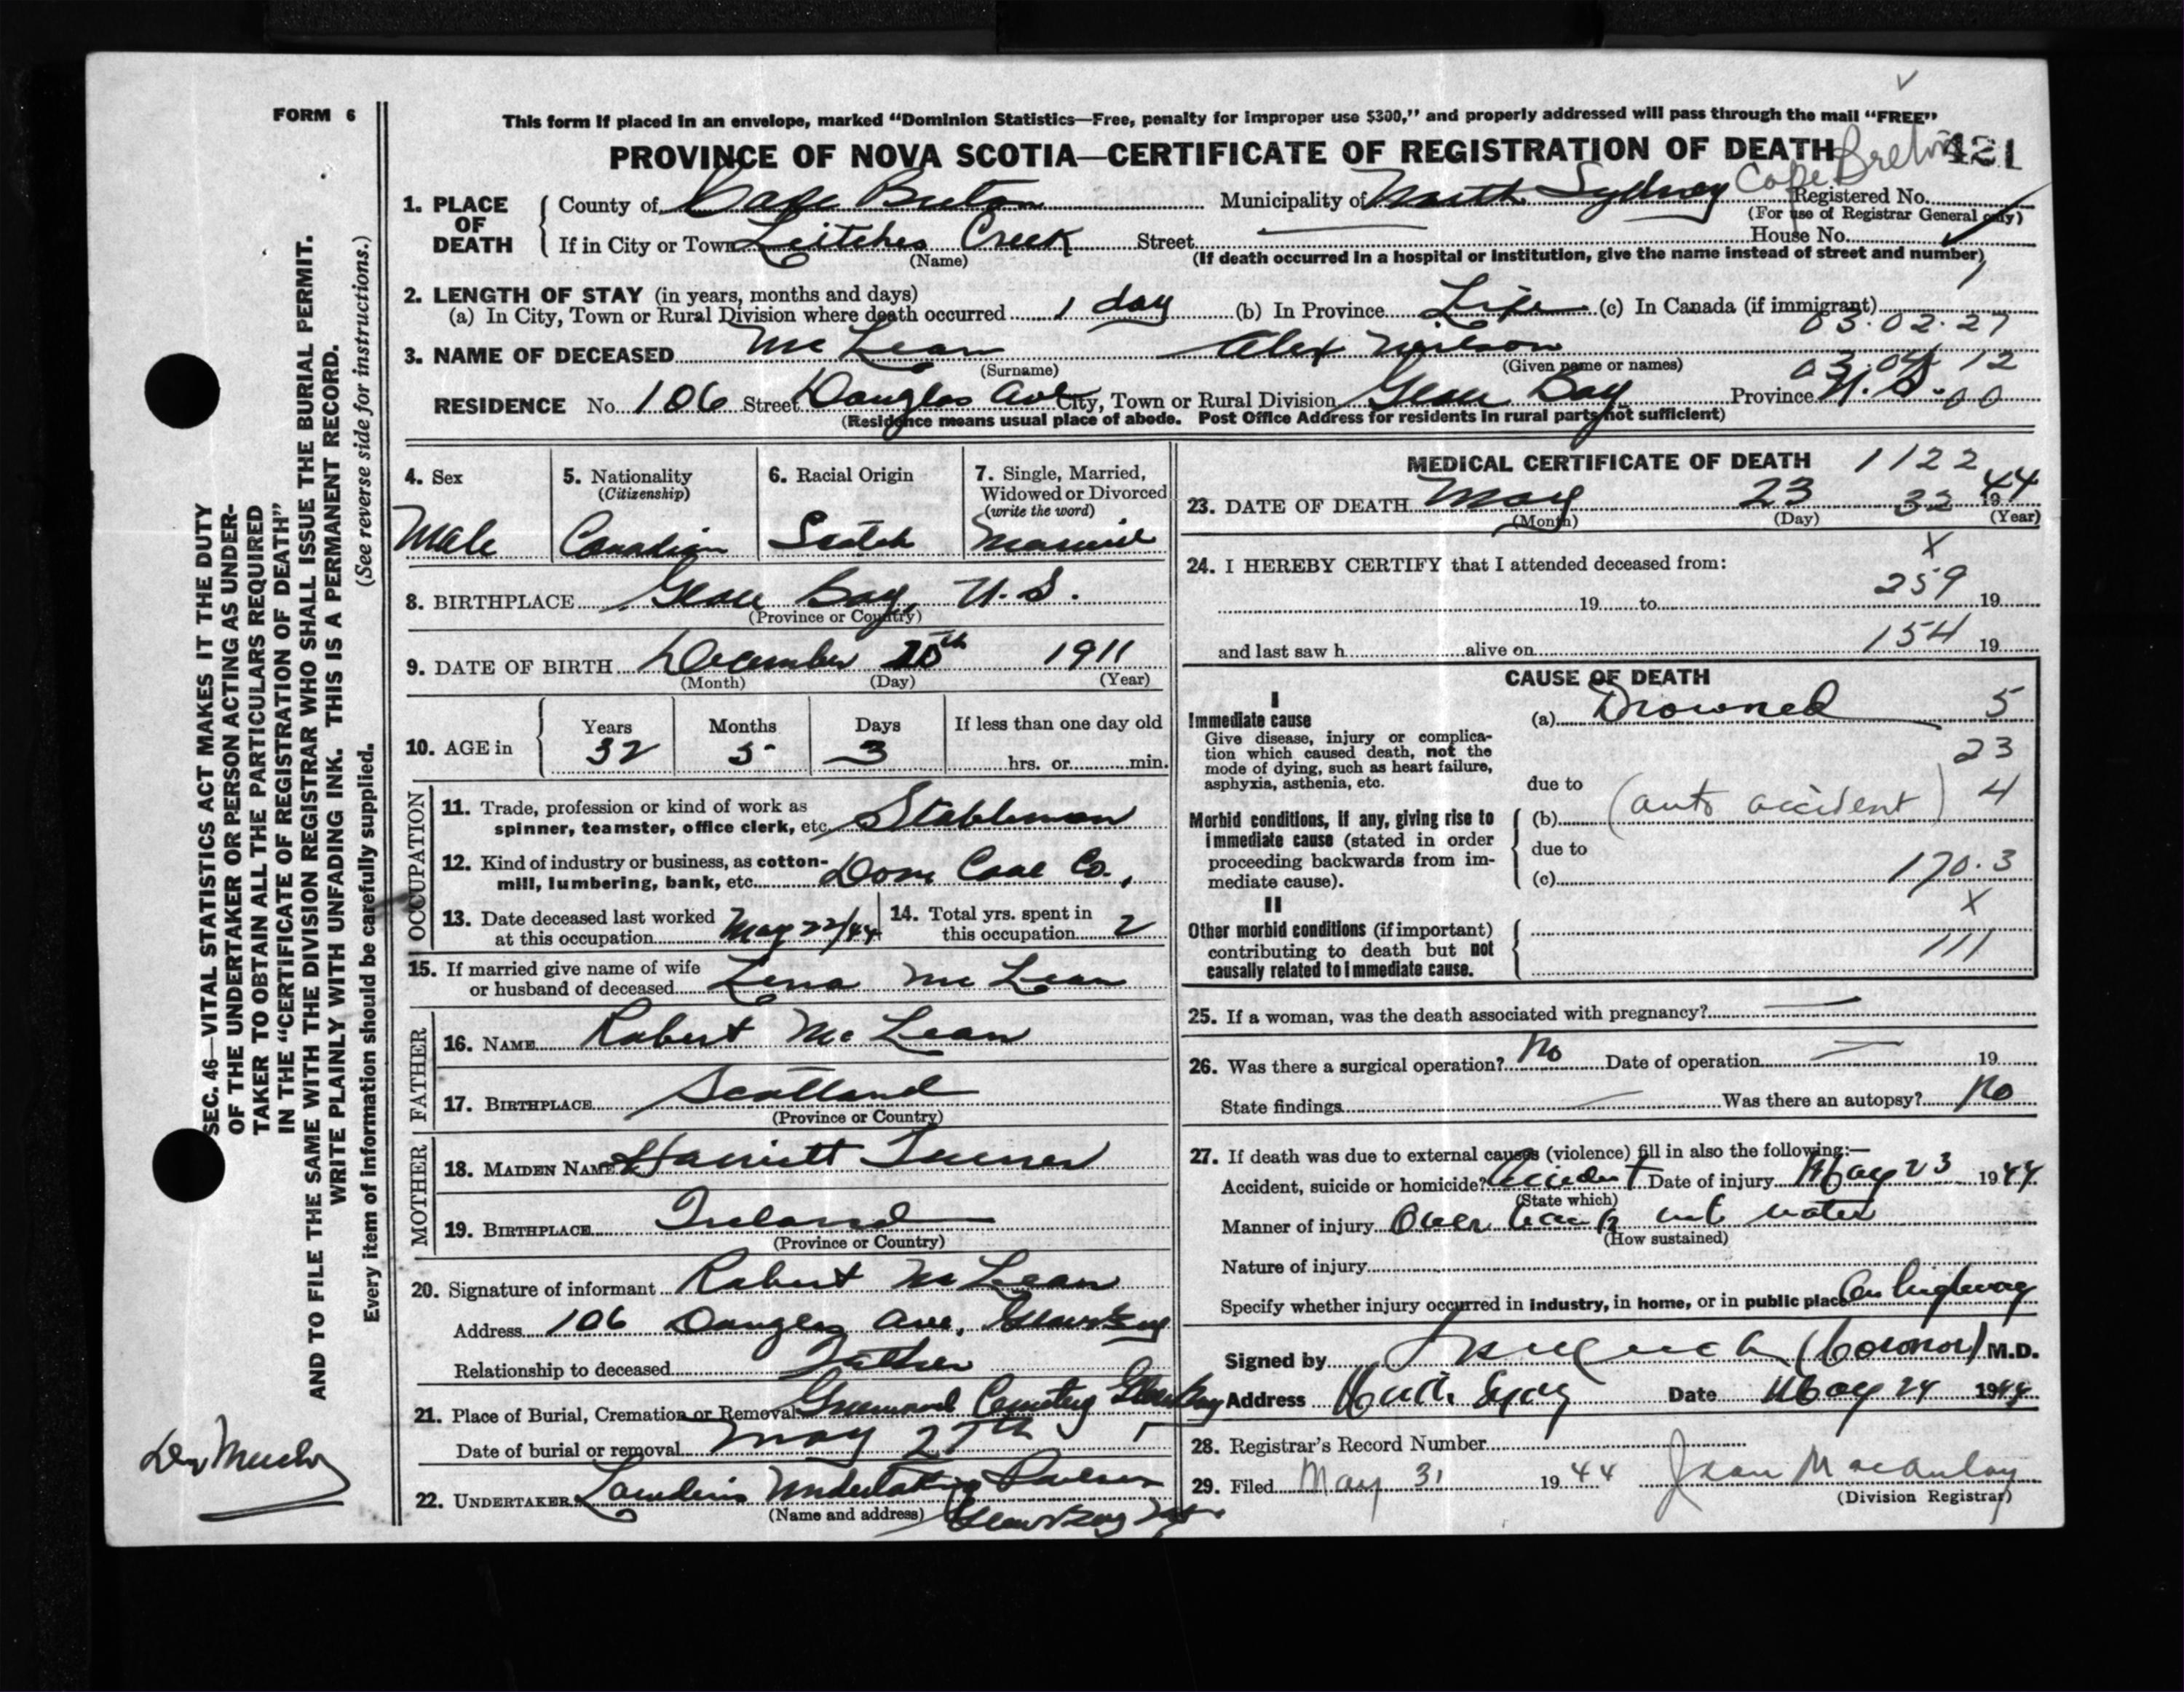 FORM 6
This form if placed in an envelope, marked “Dominion Statistics—Free, penalty for improper use $300,” and properly addressed will pass through the mail “FREE”
PROVINCE OF NOVA SCOTIA—CERTIFICATE OF REGISTRATION OF DEATH
Cape Breton 421
1. PLACE OF DEATH
County of Cape Breton Municipality of North Sydney Registered No.
(For use of Registrar General only)
If in City or Town Leitches Creek Street House No.
(Name) (If death occurred in a hospital or institution, give the name instead of street and number)
2. LENGTH OF STAY (in years, months and days)
(a) In City, Town or Rural Division where death occurred 1 day (b) In Province Life (c) In Canada (if immigrant)
03.02.27
3. NAME OF DECEASED McLean Alex Neilson
(Surname) (Given name or names)
03.04.12
RESIDENCE No. 106 Street Douglas Ave City, Town or Rural Division Glace Bay Province N.S. 00
(Residence means usual place of abode. Post Office Address for residents in rural parts not sufficient)
4. Sex
Male
5. Nationality
(Citizenship)
Canadian
6. Racial Origin
Scotch
7. Single, Married,
Widowed or Divorced
(write the word)
Married
8. BIRTHPLACE Glace Bay, N.S.
(Province or Country)
9. DATE OF BIRTH December 20th 1911
(Month) (Day) (Year)
10. AGE in
Years Months Days If less than one day old
32 5 3 hrs. or min.
OCCUPATION
11. Trade, profession or kind of work as
spinner, teamster, office clerk, etc. Stableman
12. Kind of industry or business, as cotton-
mill, lumbering, bank, etc. Dom Coal Co.,
13. Date deceased last worked
at this occupation May 22/44
14. Total yrs. spent in
this occupation 2
15. If married give name of wife
or husband of deceased Lena McLean
FATHER
16. NAME Robert McLean
17. BIRTHPLACE Scotland
(Province or Country)
MOTHER
18. MAIDEN NAME Harriett Turner
19. BIRTHPLACE Ireland
(Province or Country)
20. Signature of informant Robert McLean
Address 106 Douglas Ave, Glace Bay
Relationship to deceased Father
21. Place of Burial, Cremation or Removal Greenwood Cemetery Glace Bay
Date of burial or removal May 25th
22. UNDERTAKER Undertaking Parlors
(Name and address) Glace Bay N.S.
MEDICAL CERTIFICATE OF DEATH 1122
23. DATE OF DEATH May 23 32 1944
(Month) (Day) (Year)
24. I HEREBY CERTIFY that I attended deceased from: X
19 to 259 19
and last saw h alive on 154 19
CAUSE OF DEATH
I
Immediate cause
Give disease, injury or complica-
tion which caused death, not the
mode of dying, such as heart failure,
asphyxia, asthenia, etc.
(a) Drowned 5
23
due to
Morbid conditions, if any, giving rise to
immediate cause (stated in order
proceeding backwards from im-
mediate cause).
(b) (auto accident) 4
due to
(c) 170.3
II
X
Other morbid conditions (if important)
contributing to death but not
causally related to immediate cause.
111
25. If a woman, was the death associated with pregnancy?
26. Was there a surgical operation? No Date of operation 19
State findings Was there an autopsy? No
27. If death was due to external causes (violence) fill in also the following:—
Accident, suicide or homicide? Accident Date of injury May 23 1944
(State which)
Manner of injury Over bank into water
(How sustained)
Nature of injury
Specify whether injury occurred in industry, in home, or in public place On highway
Signed by (Coronor) M.D.
Address North Sydney Date May 24 1944
28. Registrar's Record Number
29. Filed May 31 1944 Jean Macaulay
(Division Registrar)
SEC. 46—VITAL STATISTICS ACT MAKES IT THE DUTY
OF THE UNDERTAKER OR PERSON ACTING AS UNDER-
TAKER TO OBTAIN ALL THE PARTICULARS REQUIRED
IN THE “CERTIFICATE OF REGISTRATION OF DEATH”
AND TO FILE THE SAME WITH THE DIVISION REGISTRAR WHO SHALL ISSUE THE BURIAL PERMIT.
WRITE PLAINLY WITH UNFADING INK. THIS IS A PERMANENT RECORD.
(See reverse side for instructions.)
Every item of information should be carefully supplied.